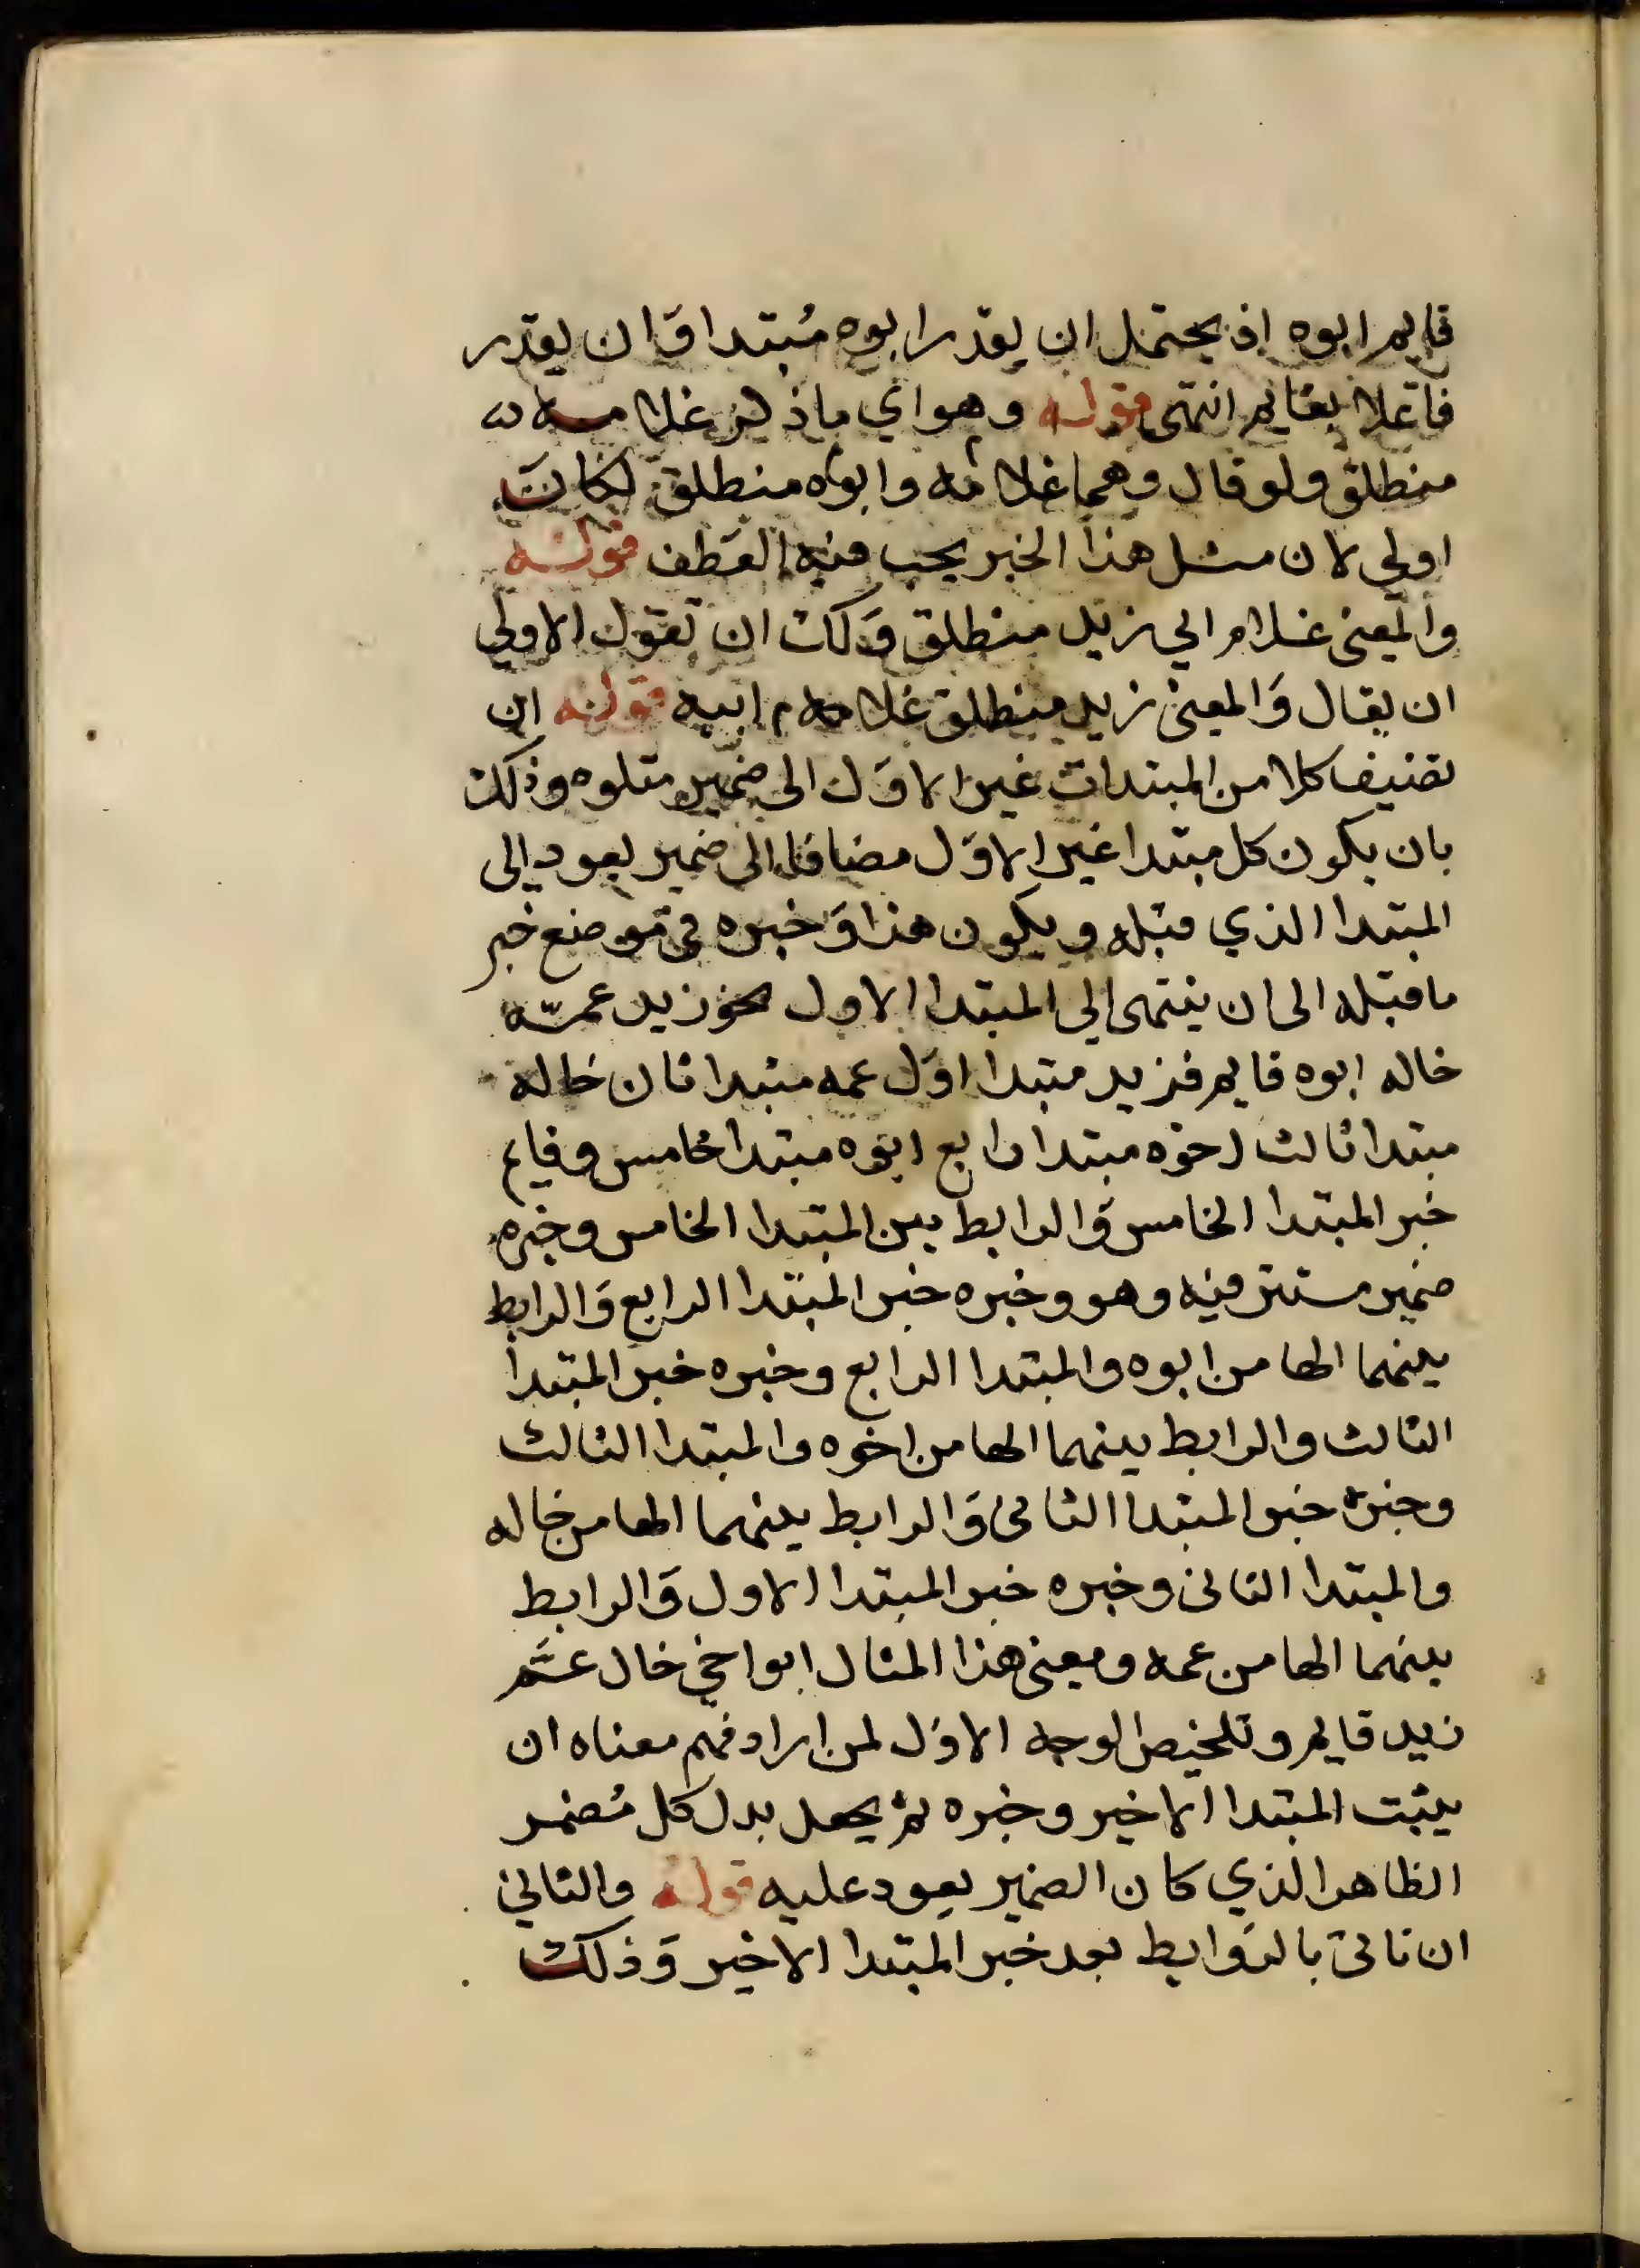 قايم ابوه اذ يحتمل ان يقدر ابوه مُبتدا وَان يقدر
فاعلا بقايم انتهى قوله وهو اي ما ذكر غلامه
منطلق ولو قال وهما غلامه وابوه منطلق لكان
اولي لان مثل هذا الخبر يجب فيه العَطف قوله
والمعنى غلام ابي زيد منطلق وَلك ان تقول الاولي
ان يقال وَالمعنى زيد منطلق غلام ابيه قوله ان
تضيف كلا من المبتدات غير الاوَل الى ضمير متلوه وذلك
بان يكون كل مبتدا غير الاوّل مضافا الى ضمير يعود الى
المبتدا الذي قبله ويكون هذا وَخبره في موضع خبر
ما قبله الى ان ينتهى الى المبتدا الاول نحو زيد عمّه
خاله ابوه قايم فزيد مبتدا اوَل عمه مبتدا ثان خاله
مبتدا ثالث اخوه مبتدا رابع ابوه مبتدا خامس وقايم
خبر المبتدا الخامس وَالرابط بين المبتدا الخامس وخبره
ضمير مستتر فيه وهو وخبره خبر المبتدا الرابع وَالرابط
بينهما الها من ابوه والمبتدا الرابع وخبره خبر المبتدا
الثالث والرابط بينهما الها من اخوه والمبتدا الثالث
وخبره خبر المبتدا الثانى وَالرابط بينهما الها من خاله
والمبتدا الثانى وخبره خبر المبتدا الاول وَالرابط
بينهما الها من عمه ومعنى هذا المثال ابو اخي خال عَمّ
زيد قايم وتلخيص الوجه الاوَل لمن اراد فهم معناه ان
يثبت المبتدا الاخير وخبره ثم يجعل بدل كل مُضمر
الظاهر الذي كان الضمير يعود عليه قوله والثانى
ان تاتى بالروَابط بعد خبر المبتدا الاخير وَذلك